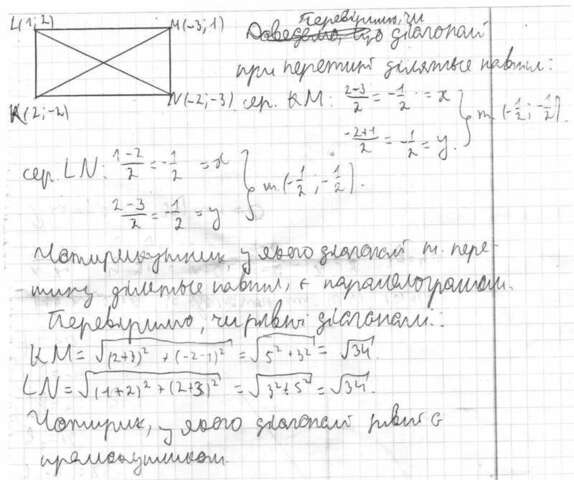 L(1;2) M(-3;1)
K(2;-2) N(-2;-3)
Перевіримо, чи
Доведемо, що діагоналі
при перетині діляться навпіл:
сер. KM: \frac{2-3}{2} = -\frac{1}{2} = x
\frac{-2+1}{2} = -\frac{1}{2} = y. } m (-\frac{1}{2}; -\frac{1}{2}).
сер. LN: \frac{1-2}{2} = -\frac{1}{2} = x
\frac{2-3}{2} = -\frac{1}{2} = y } m (-\frac{1}{2}; -\frac{1}{2}).
Чотирикутник, у якого діагоналі т. пере-
тину діляться навпіл, є паралелограмом.
Перевіримо, чи рівні діагоналі:
KM = √((2+3)² + (-2-1)²) = √(5² + 3²) = √34.
LN = √((1+2)² + (2+3)²) = √(3² + 5²) = √34.
Чотирик, у якого діагоналі рівні є
прямокутником.